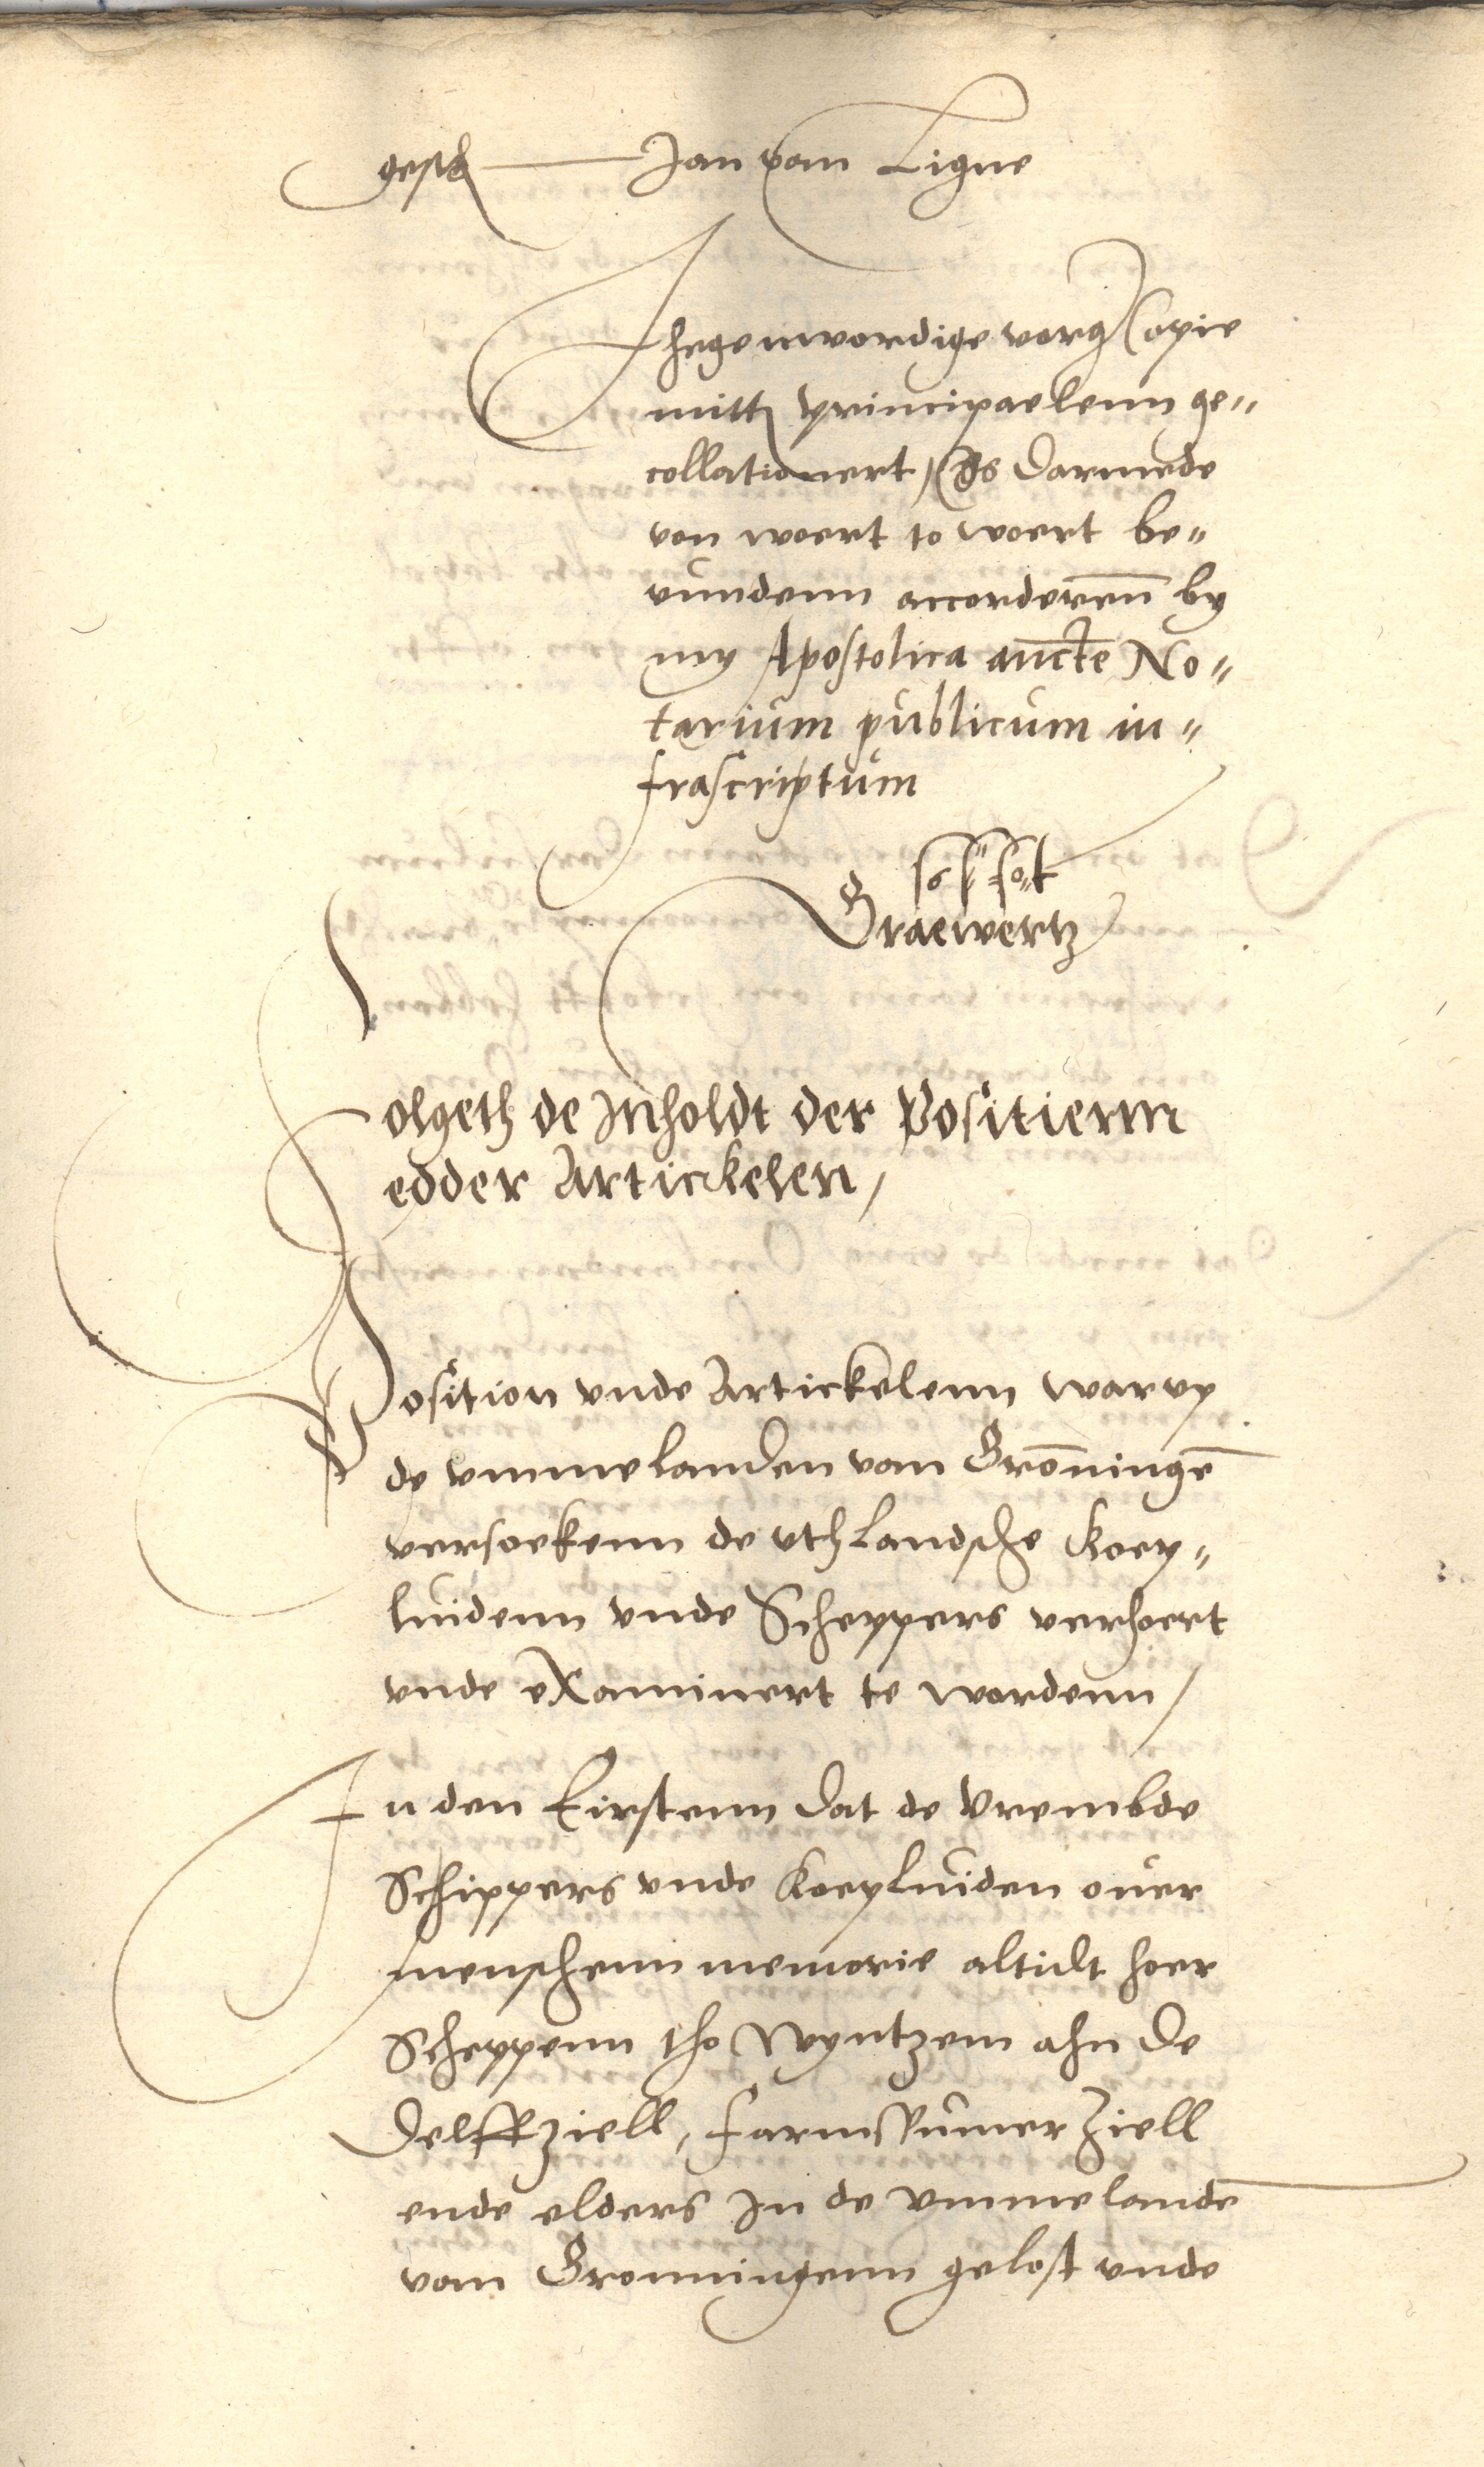 gesch Jan van Ligne
Thegenwordige vorg Copie
mitt principaelenn ge„
collationert / Is darmede
van woert to woert be„
vundenn accorderenn by
my Apostolica aucte No„
tarium publicum in„
frascriptum
Graewertz
Volgeth de Inholdt der Positienn
edder Artickelen /
Position vnde Artickelenn war vp
de vmmelanden van Gronninge
versoekenn de vthlandsche Koep„
luidenn vnde Scheppers verhoert
vnde examinert te wordenn /
In den Eirstenn dat de vrembde
Schippers vnde Koepluiden ouer
menschenn memorie altidt hoer
Scheppenn tho Wyntzem ahn de
Delffziell, Farmssumer Ziell
ende elders In de Vmmelande
van Gronningenn gelost vnde